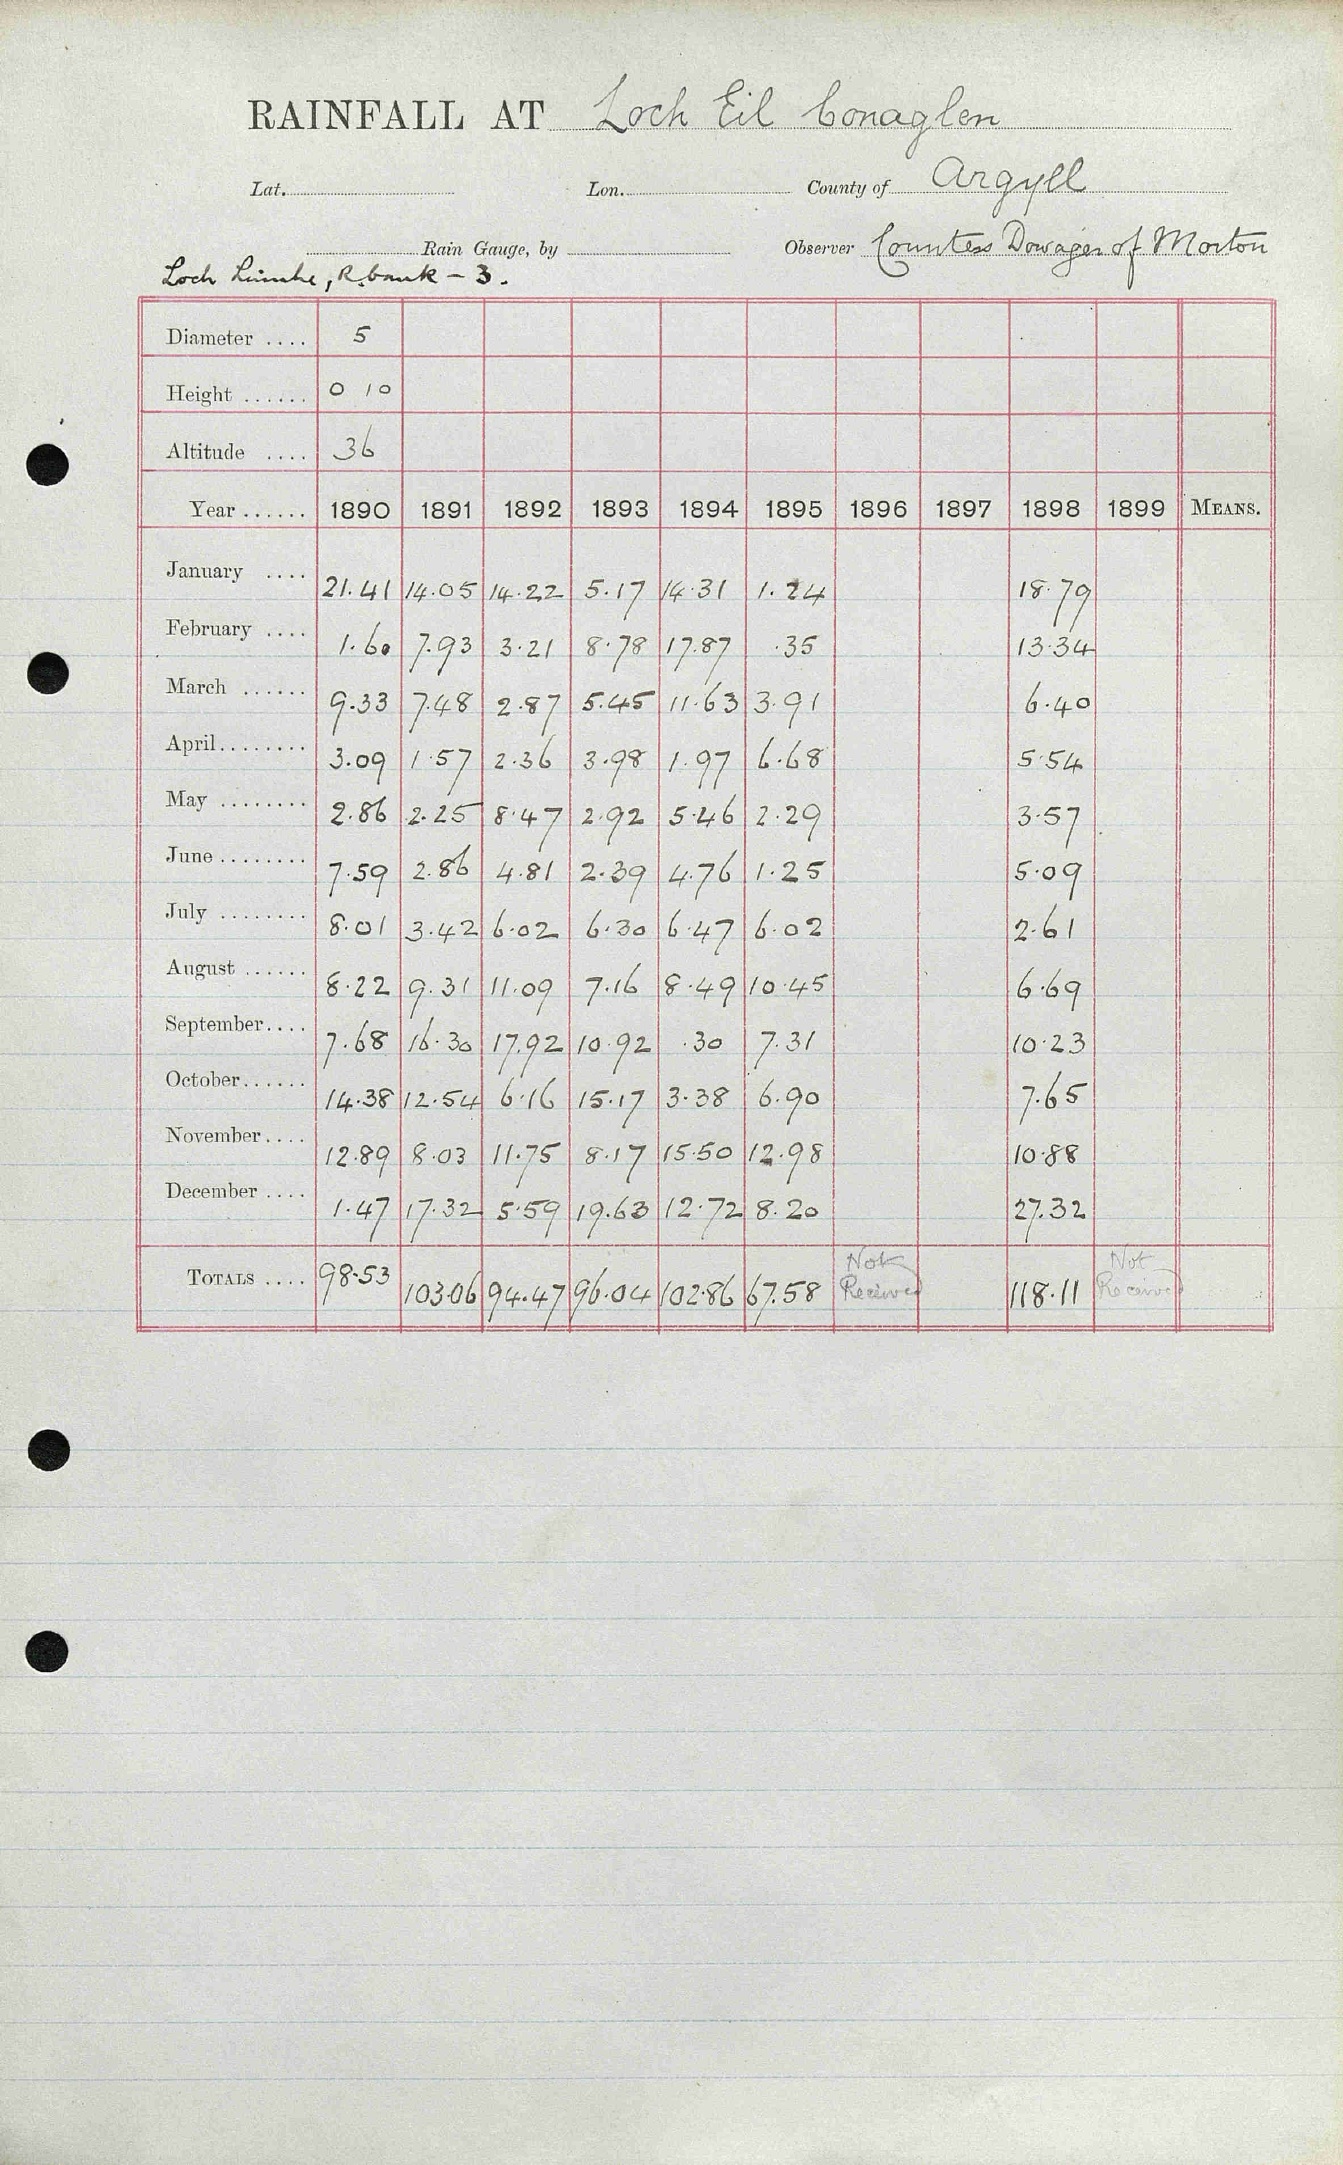 RAINFALL AT Loch Eil Conaglen
Lat. Lon. County of Argyll
Rain Gauge, by Observer Countess Dowager of Morton
Loch Linnhe, R. bank - 3.
Diameter .... 5
Height ...... 0 10
Altitude .... 36
Year ...... 1890 1891 1892 1893 1894 1895 1896 1897 1898 1899 MEANS.
January .... 21.41 14.05 14.22 5.17 14.31 1.24 18.79
February .... 1.60 7.93 3.21 8.78 17.87 .35 13.34
March ...... 9.33 7.48 2.87 5.45 11.63 3.91 6.40
April ........ 3.09 1.57 2.36 3.98 1.97 6.68 5.54
May ........ 2.86 2.25 8.47 2.92 5.46 2.29 3.57
June ........ 7.59 2.86 4.81 2.39 4.76 1.25 5.09
July ........ 8.01 3.42 6.02 6.30 6.47 6.02 2.61
August ...... 8.22 9.31 11.09 7.16 8.49 10.45 6.69
September .... 7.68 16.30 17.92 10.92 .30 7.31 10.23
October ...... 14.38 12.54 6.16 15.17 3.38 6.90 7.65
November .... 12.89 8.03 11.75 8.17 15.50 12.98 10.88
December .... 1.47 17.32 5.59 19.63 12.72 8.20 27.32
TOTALS .... 98.53 103.06 94.47 96.04 102.86 67.58 Not Received 118.11 Not Received